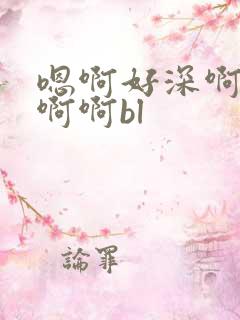 嗯啊好深啊
啊啊bl
論罪